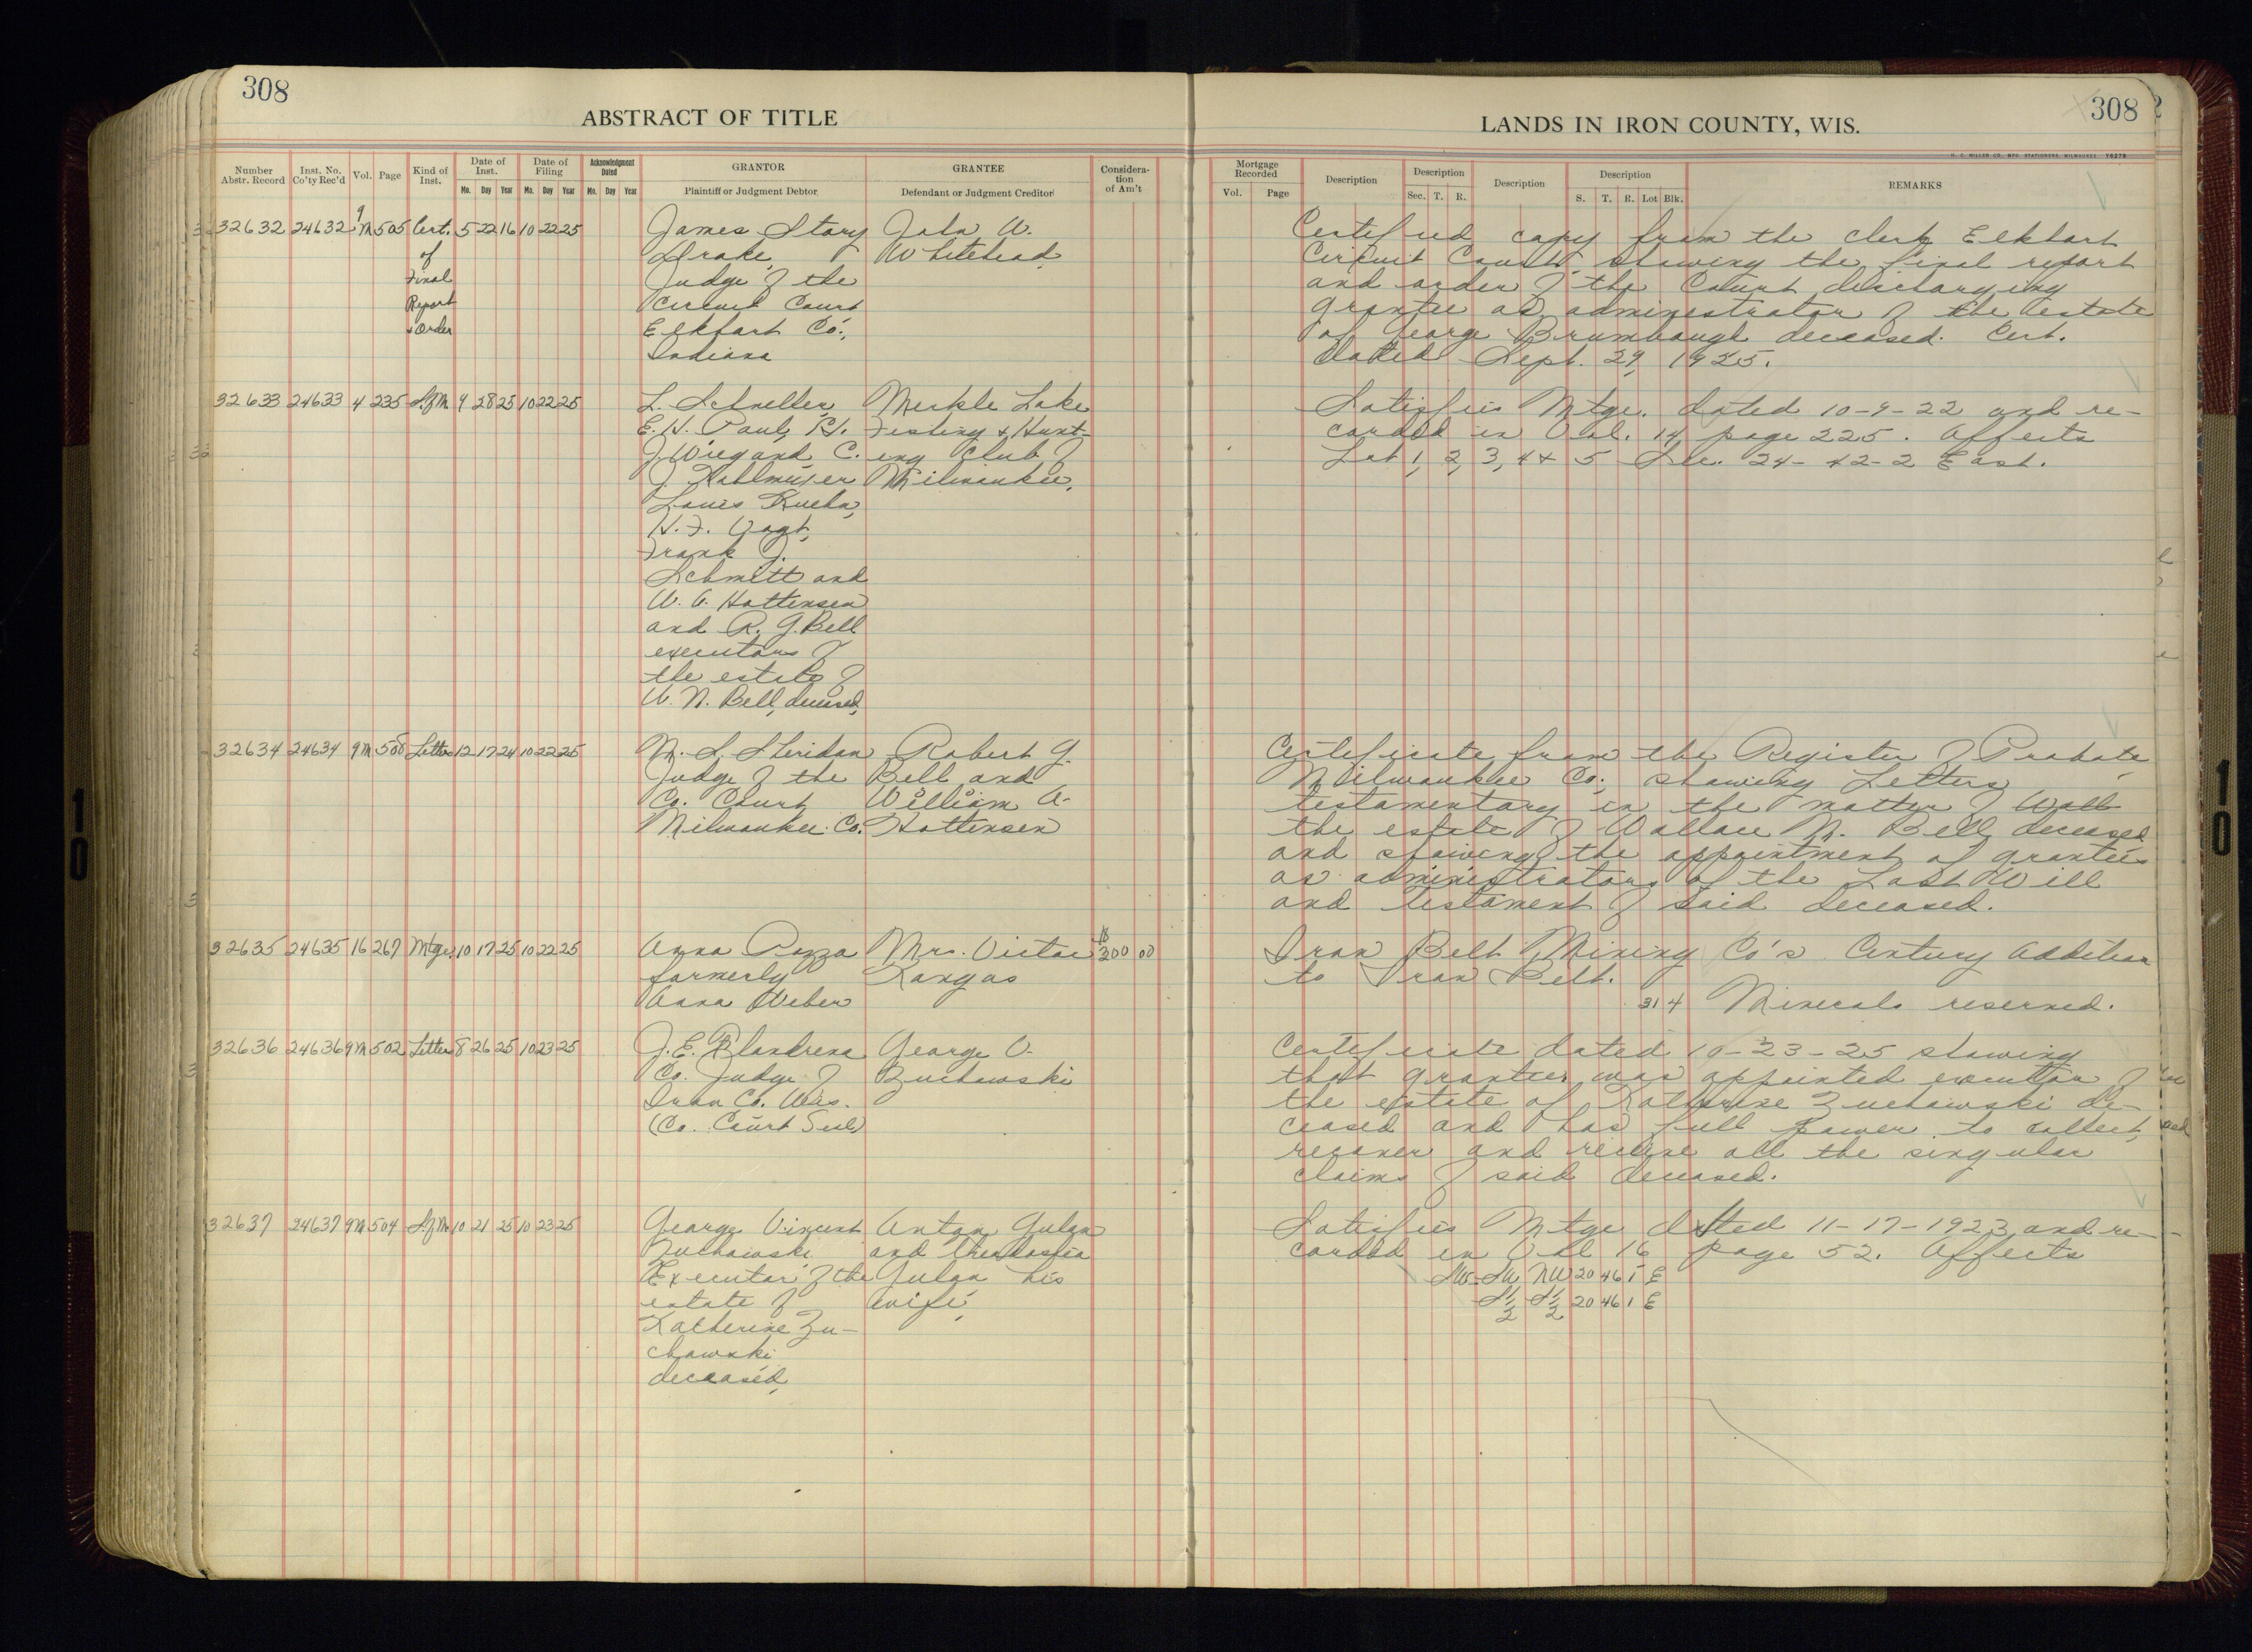 308
ABSTRACT OF TITLE
Number Abstr. Record
Inst. No. Co'ty Rec'd
Vol.
Page
Kind of Inst.
Date of Inst.
Mo. Day Year
Date of Filing
Mo. Day Year
Acknowledgment Dated
Mo. Day Year
GRANTOR
Plaintiff or Judgment Debtor
GRANTEE
Defendant or Judgment Creditor
Considera-tion of Am't
308
LANDS IN IRON COUNTY, WIS.
H. C. MILLER CO., MFG. STATIONERS, MILWAUKEE
Mortgage Recorded
Vol. Page
Description
Description
Sec. T. R.
Description
Description
S. T. R. Lot Blk.
REMARKS
32632 24632 9 M 505 Cert. 5 22 16 10 22 25
of
Final
Report
+ Order
James Story
Drake,
Judge of the
Circuit Court
Elkhart Co.,
Indiana
John W.
Whitehead
Certified copy from the clerk Elkhart
Circuit Court, showing the final report
and order of the Court discharging
grantee as administrator of the estate
of George Brumbaugh deceased. Cert.
dated Sept. 29, 1925.
32633 24633 4 235 S.of M. 9 28 25 10 22 25
L. Schneller,
E. H. Paul, P.
J. Wiegand, C.
J. Kahlmeyer
Louis Kuehn,
H. F. Vogt,
Frank J.
Schmitt and
W. A. Hottensen
and R. G. Bell
executors of
the estate of
W. N. Bell, deceased,
Merkle Lake
Fishing & Hunt-
ing Club of
Milwaukee,
Satisfies Mtge. dated 10-9-22 and re-
corded in Vol. 14 page 225. Affects
Lot 1, 2, 3, 4 + 5 Sec. 24-42-2 East.
32634 24634 9 M 500 Letters 12 17 24 10 22 25
M. S. Sheridan
Judge of the
Co. Court
Milwaukee Co.
Robert G.
Bell and
William A.
Hottensen
Certificate from the Register of Probate
Milwaukee Co., showing Letters
testamentary in the matter of Wall
the estate of Wallace N. Bell, deceased
and showing the appointment of grantees
as administrators of the Last Will
and testament of said deceased.
32635 24635 16 267 Mtge. 10 17 25 10 22 25
Anna Pozza
formerly
Anna Weber
Mrs. Victor
Kangas
$300 00
Iron Belt Mining Co's Century Addition
to Iron Belt.
31 4 Minerals reserved.
32636 24636 9 M 502 Letters 8 26 25 10 23 25
J. E. Flandrena
Co. Judge of
Iron Co. Wis.
(Co. Court Seal)
George V.
Zuchowski
Certificate dated 10-23-25 showing
that grantee was appointed executor of
the estate of Katherine Zuchowski de-
ceased and has full power to collect,
recover and receive all the singular
claims of said deceased.
32637 24637 9 M 504 S.of M. 10 21 25 10 23 25
George Vincent
Zuchowski
Executor of the
estate of
Katherine Zu-
chowski
deceased,
Anton Gulan
and
Gulan his
wife,
Satisfies Mtge dated 11-17-1923 and re-
corded in Vol 16 page 52. Affects
SW-SW NW 20 46 1 E
S 1/2 S 1/2 20 46 1 E
10
10